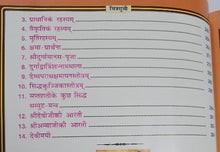 विषयसूची
३. प्राधानिकं रहस्यम्
४. वैकृतिकं रहस्यम्
५. मूर्तिरहस्यम्
६. क्षमा-प्रार्थना
७. श्रीदुर्गामानस-पूजा
८. दुर्गाद्वात्रिंशन्नाममाला
९. देव्यपराधक्षमापनस्तोत्रम्
१०. सिद्धकुञ्जिकास्तोत्रम्
११. सप्तशतीके कुछ सिद्ध
सम्पुट-मन्त्र
१२. श्रीदेवीजीकी आरती
१३. श्रीअम्बाजीकी आरती
१४. देवीमयी